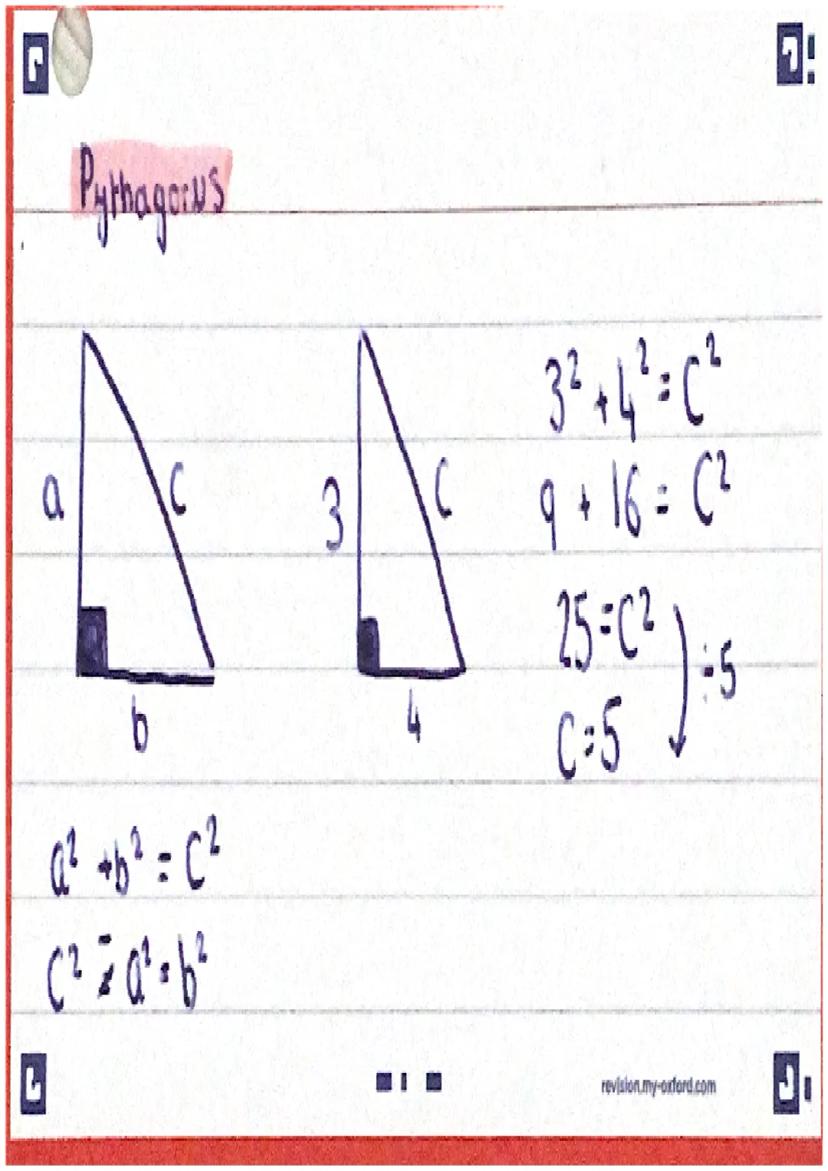 Pythagorus
a
c
b
3
c
4
3² + 4² = C²
9 + 16 = C²
25 = C²
÷5
C = 5
a² + b² = C²
C² - a² = b²
revision.my-oxford.com